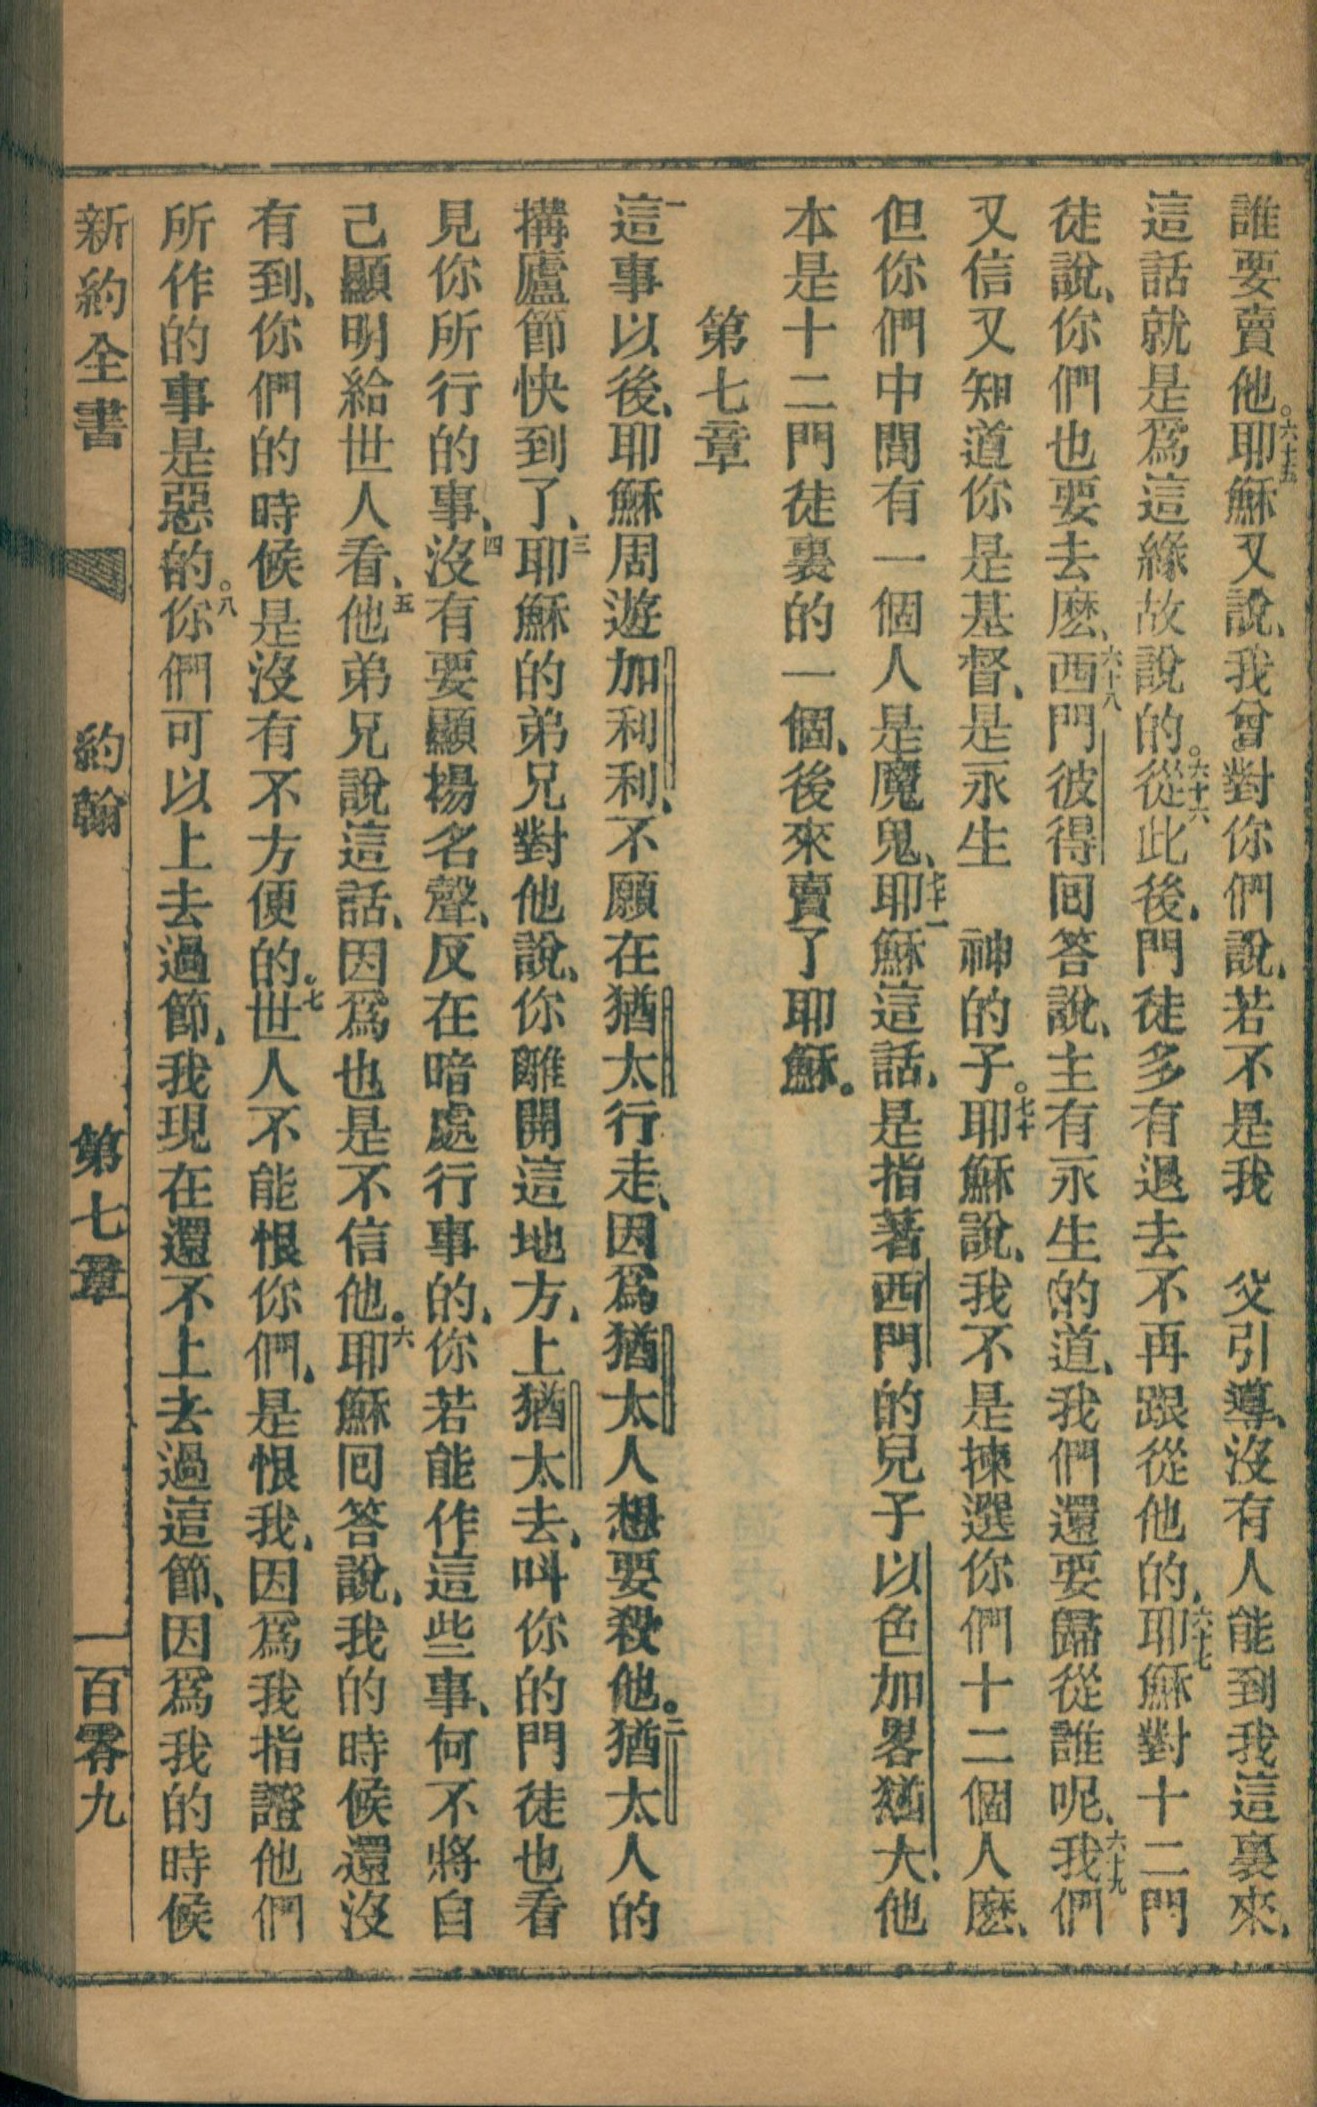 誰要賣他。六十五耶穌又說、我曾對你們說、若不是我　父引導、沒有人能到我這裏來、
這話就是爲這緣故說的。六十六從此後、門徒多有退去不再跟從他的、六十七耶穌對十二門
徒說、你們也要去麽、六十八西門彼得回答說、主有永生的道、我們還要歸從誰呢、六十九我們
又信又知道你是基督、是永生　神的子。七十耶穌說、我不是揀選你們十二個人麽、
但你們中間有一個人是魔鬼、七十一耶穌這話、是指著西門的兒子以色加畧猶大、他
本是十二門徒裏的一個、後來賣了耶穌。
第七章
一這事以後、耶穌周遊加利利、不願在猶太行走、因爲猶太人想要殺他。二猶太人的
搆廬節快到了、三耶穌的弟兄對他說、你離開這地方、上猶太去、叫你的門徒也看
見你所行的事、四沒有要顯揚名聲、反在暗處行事的、你若能作這些事、何不將自
己顯明給世人看、五他弟兄說這話、因爲也是不信他。六耶穌回答說、我的時候還沒
有到、你們的時候是沒有不方便的。七世人不能恨你們、是恨我、因爲我指證他們
所作的事是惡的。八你們可以上去過節、我現在還不上去過這節、因爲我的時候
新約全書　約翰　第七章　一百零九